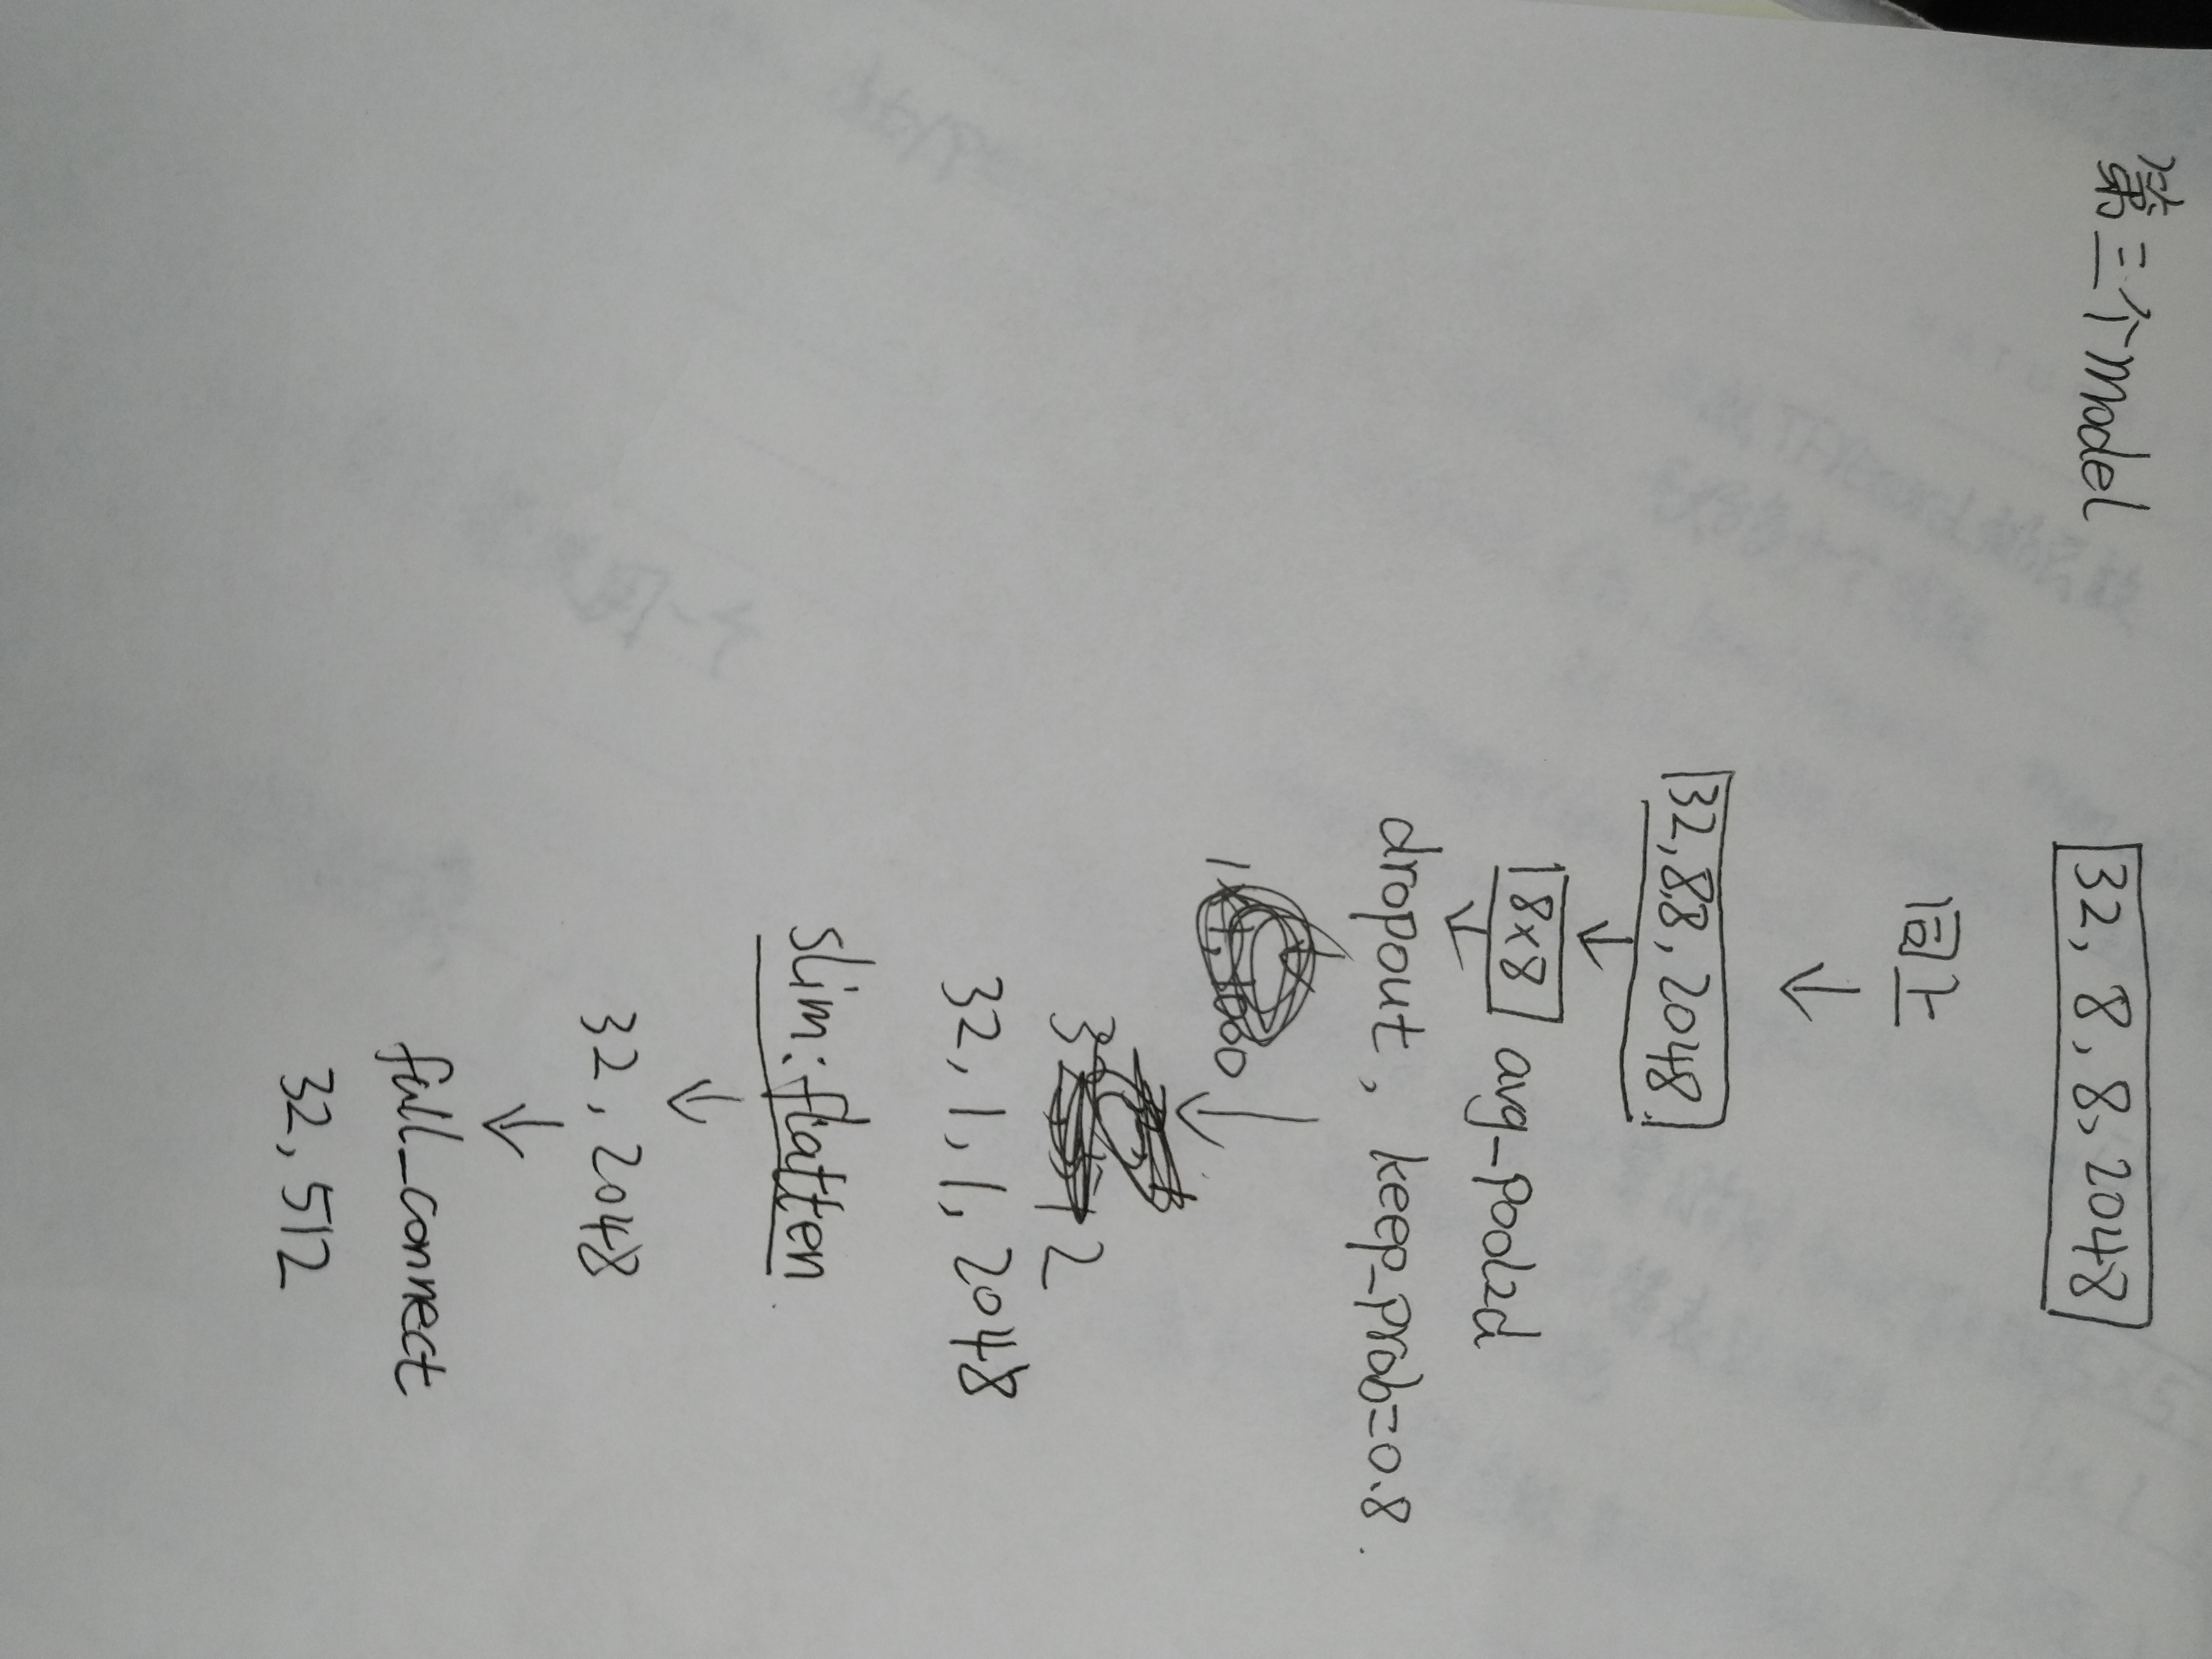 第三个model
32, 8, 8, 2048
同上
↓
32,8,8, 2048
↓
8×8 avg_pool2d
↓
dropout, keep_prob=0.8.
↓
32, 1, 1, 2048
slim:flatten
↓
32, 2048
↓
full_connect
32, 512